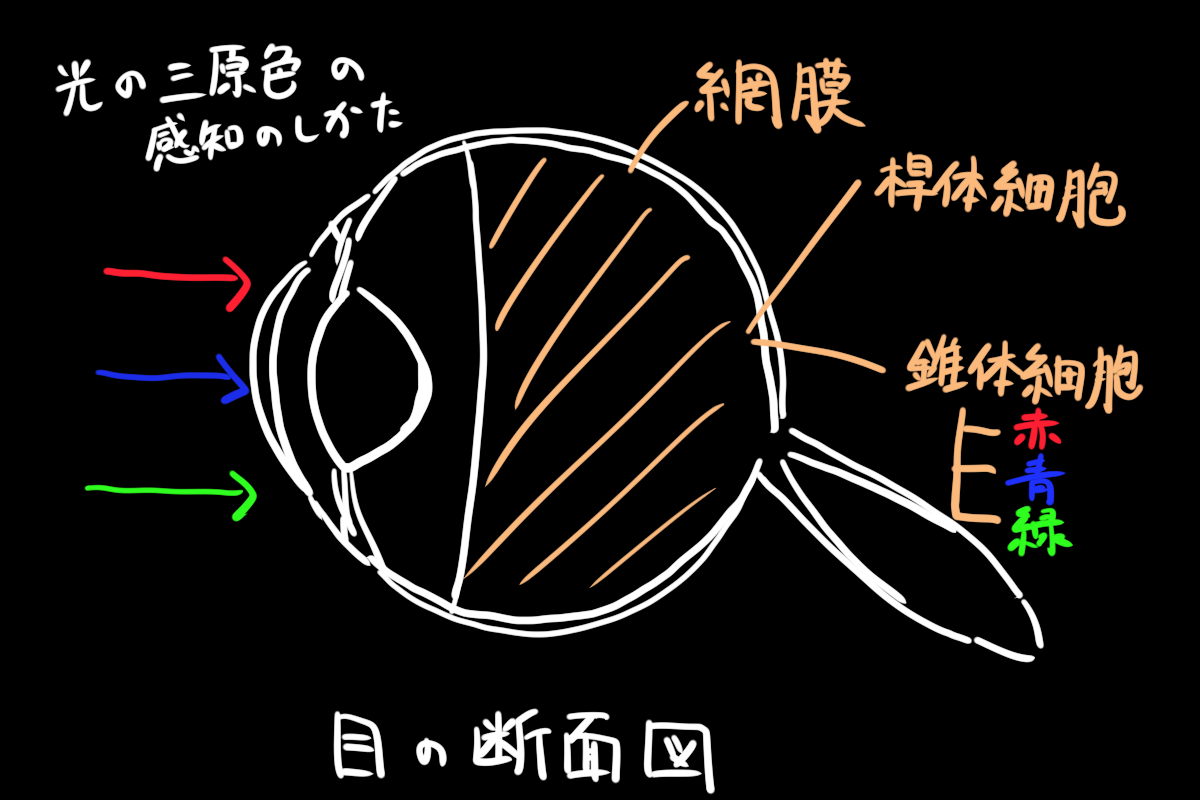 光の三原色の
感知のしかた
網膜
桿体細胞
錐体細胞
赤
青
緑
目の断面図